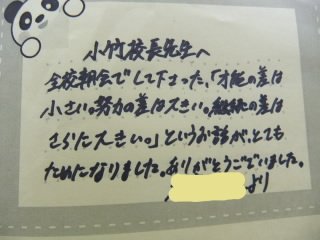 小竹校長先生へ
全校朝会でして下さった、「才能の差は
小さい。努力の差は大きい。継続の差は
さらに大きい。」というお話が、とても
ためになりました。ありがとうございました。
より